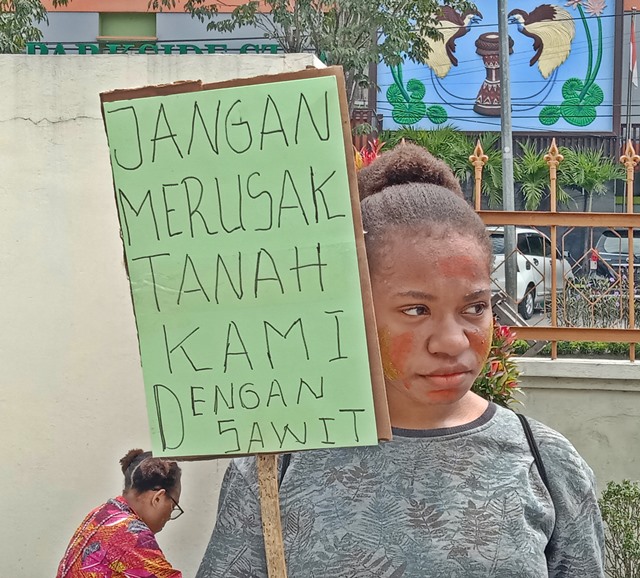 PARKSIDE ST
JANGAN
MERUSAK
TANAH
KAMI
DENGAN
SAWIT